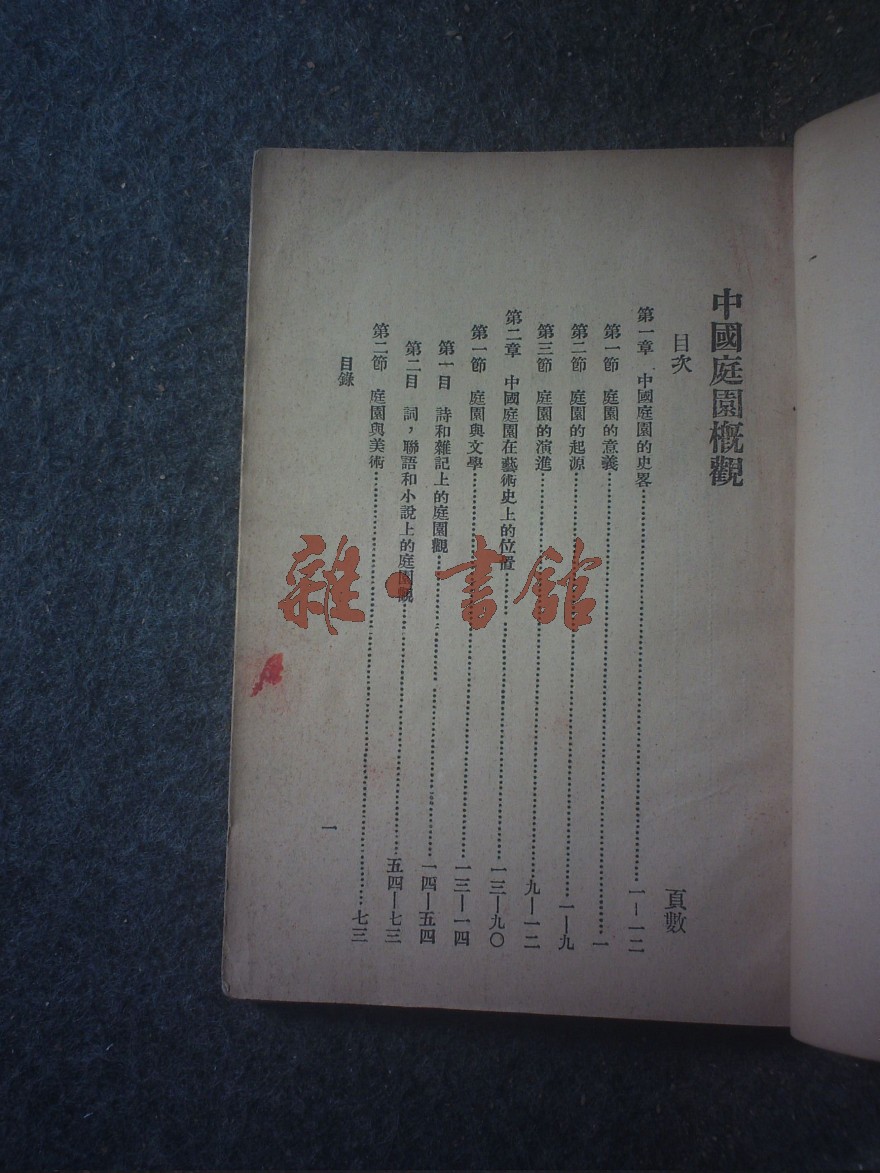 中國庭園概觀
目次 頁數
第一章 中國庭園的史畧 一—一二
第一節 庭園的意義 一
第二節 庭園的起源 一—九
第三節 庭園的演進 九—一二
第二章 中國庭園在藝術史上的位置 一三—九〇
第一節 庭園與文學 一三—一四
第一目 詩和雜記上的庭園觀 一四—五四
第二目 詞，聯語和小說上的庭園觀 五四—七三
第二節 庭園與美術 七三
目錄 一
雜·書館